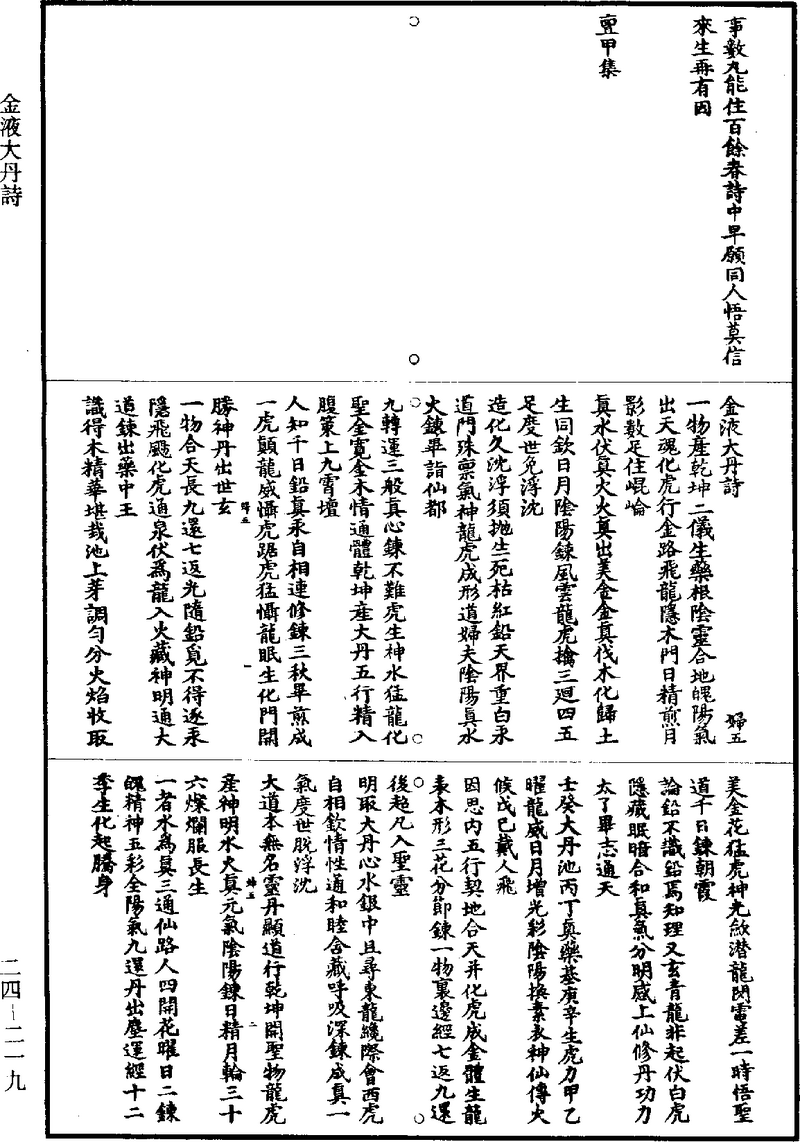 事數九能住百餘春詩中早願同人悟莫信
來生再有因
亶甲集
金液大丹詩
婦五
一物產乾坤二儀生藥根陰靈合地魄陽氣
出天魂化虎行金路飛龍隱木門日精煎月
影數足住崐崘
真水伏真火火真出美金金真伐木化歸土
生同欽日月陰陽鍊風雲龍虎擒三迴四五
足度世免浮沈
造化久沈浮須拋生死枯紅鉛天界重白汞
道門殊禀氣神龍虎成形道婦夫陰陽真水
火鍊畢詣仙都
九轉運三般真心鍊不難虎生神水猛龍化
聖金寬金木情通體乾坤產大丹五行精入
腹策上九霄壇
人知千日鉛真汞自相連修鍊三秋畢煎成
一虎顛龍威懾虎踞虎猛懾龍眠生化門開
勝神丹出世玄
一物合天長九還七返光隨鉛覓不得逐汞
隱飛颺化虎通泉伏為龍入火藏神明通大
道鍊出藥中王
識得木精華堪栽池上芽調勻分火焰收取
美金花猛虎神光斂潛龍閃電差一時悟聖
道千日鍊朝霞
論鉛不識鉛焉知理又玄青龍非起伏白虎
隱藏眠暗合和真氣分明感上仙修丹功力
太了畢志通天
壬癸大丹池丙丁真藥基庚辛生虎力甲乙
曜龍威日月增光彩陰陽換素衣神仙傳火
候戊己戴人飛
因思內五行契地合天并化虎成金體生龍
表木形三花分節鍊一物裏邊經七返九還
後超凡入聖靈
明取大丹心水銀中且尋東龍纔際會西虎
自相欽情性通和睦含藏呼吸深鍊成真一
氣度世脫浮沈
大道本無名靈丹顯道行乾坤開聖物龍虎
產神明水火真元氣陰陽鍊日精月輪三十
六燦爛服長生
一者水為真三通仙路人四開花曜日二鍊
魄精神五彩全陽氣九還丹出塵運經十二
季生化起騰身
婦五
一
婦五
二
金液大丹詩
二四—二一九